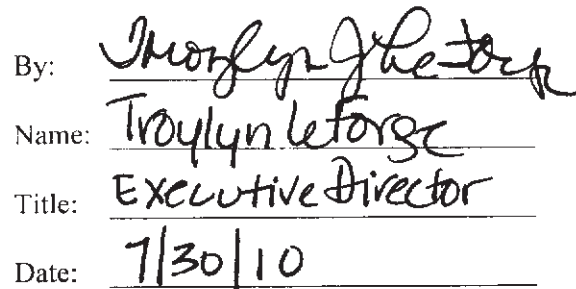 By: Troylyn J LeForge
Name: Troylyn LeForge
Title: Executive Director
Date: 7/30/10